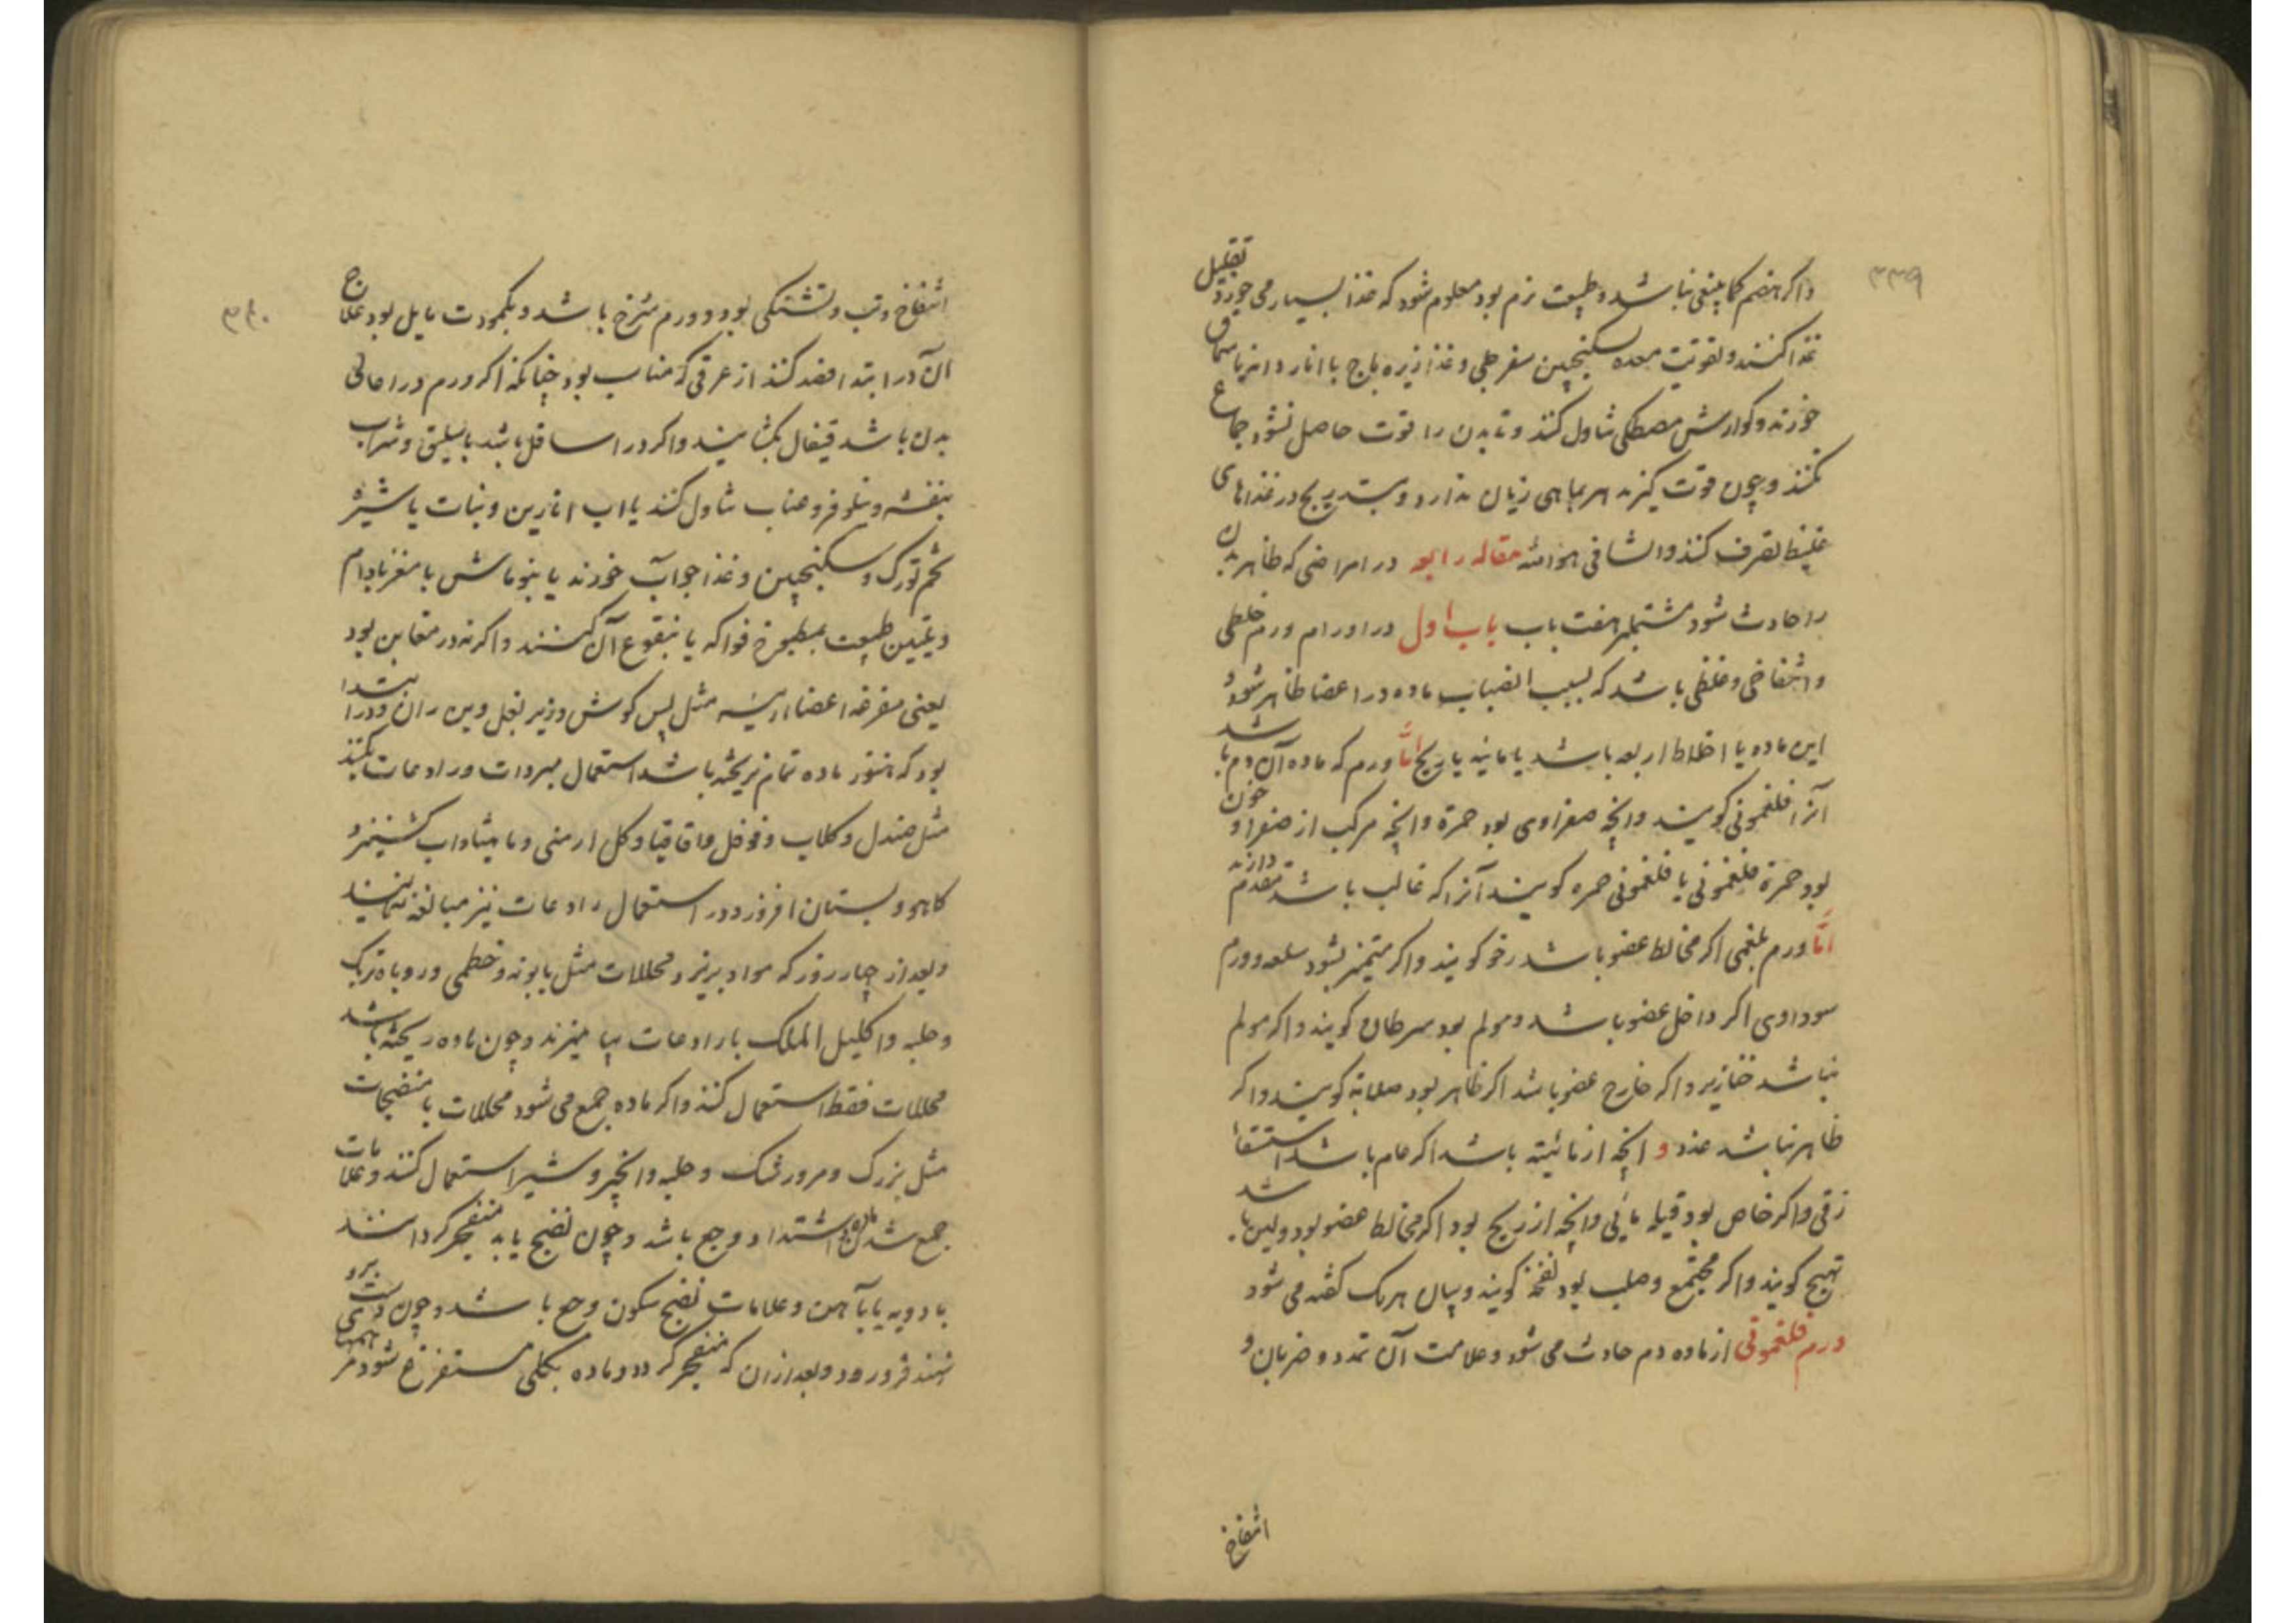 ۳۳۹
واکر هضم کما ینبغی نباشد و طبیعت نرم بود معلوم شود که غذا بسیار می خورد تقلیل
غذا کنند و تقویت معده بسکنجبین سفرجلی و غذا زیره باج با انار دانه یا سماق
خورند و کوارش مصطکی تناول کنند و تا بدن را قوت حاصل نشود جماع
نکنند و چون قوت کیرند هر مباهی زیان ندارد و بتدریج در غذاهای
غلیظ تصرف کنند والشافی هو الله مقاله رابعه در امراضی که ظاهر بدن
را حادث شود مشتمل بر هفت باب باب اول در اورام ورم غلظی
و انتفاخی و غلظی باشد که بسبب انصباب ماده در اعضا ظاهر شود و
این ماده یا اخلاط اربعه باشد یا مائیه یا ریح امّا ورم که ماده آن دم باشد
آنرا فلغمونی کویند و انچه صفراوی بود حمرة و انچه مرکب از صفرا و خون
بود حمرة فلغمونی یا فلغمونی حمره کویند آنرا که غالب باشد مقدم دارند
امّا ورم بلغمی اکر مخالط عضو باشد رخو کویند و اکر متمیز بشود سلعه و ورم
سوداوی اکر داخل عضو باشد و مولم بود سرطان کویند و اکر مولم
نباشد خنازیر و اکر خارج عضو باشد اکر ظاهر بود صلابة کویند و اکر
ظاهر نباشد غدد و انچه از مائیته باشد اکر عام باشد استسقاء
زقی و اکر خاص بود قیله مائی و انچه از ریح بود اکر مخالط عضو بود و لین باشد
تهیج کویند و اکر مجتمع و صلب بود نفخه کویند و بیان هر یک کفته می شود
ورم فلغمونی از ماده دم حادث می شود و علامت آن تمدد و ضربان و
انتفاخ
۳۴۰
انتفاخ و تب و تشنکی بود و ورم سرخ باشد و بکمودت مایل بود علاج
آن در ابتدا فصد کنند از عرقی که مناسب بود چنانکه اکر ورم در اعالی
بدن باشد قیفال بکشایند و اکر در اسافل باشد باسلیق و شراب
بنفشه و نیلوفر و عناب تناول کنند یا اب انارین و نبات یا شیره
تخم تورک و سکنجبین و غذا جواب خورند یا بنو ماش با مغز بادام
و تلیین طبیعت بمطبوخ فواکه یا بنقوع آن کنند و اکر نه در مغابن بود
یعنی مفرغه اعضا رئیسه مثل پس کوش و زیر بغل و بن ران و در ابتدا
بود که هنوز ماده تمام نریخته باشد استعمال مبردات و رادعات بکنند
مثل صندل و کلاب و فوفل و اقاقیا و کل ارمنی و مامیثا و اب کشنیز و
کاهو و بستان افروز و در استعمال رادعات نیز مبالغه ننمایند
و بعد از چهار روز که مواد بریزد محللات مثل بابونه و خطمی و روباه تربک
و حلبه و اکلیل الملک با رادعات بیامیزند و چون ماده ریخته باشد
محللات فقط استعمال کنند و اکر ماده جمع می شود محللات با منضجات
مثل بزرک و مرورشک و حلبه و انجیر و شیر استعمال کنند و علامات
جمع شدن ماده اشتداد وجع باشد و چون نضج یابد منفجر کردانند
بادویه یا بآهن و علامات نضج سکون وجع باشد و چون دست برو
نهند فرو رود و بعد از ان که منفجر کردد و ماده بکلی مستفرغ شود مرهمها